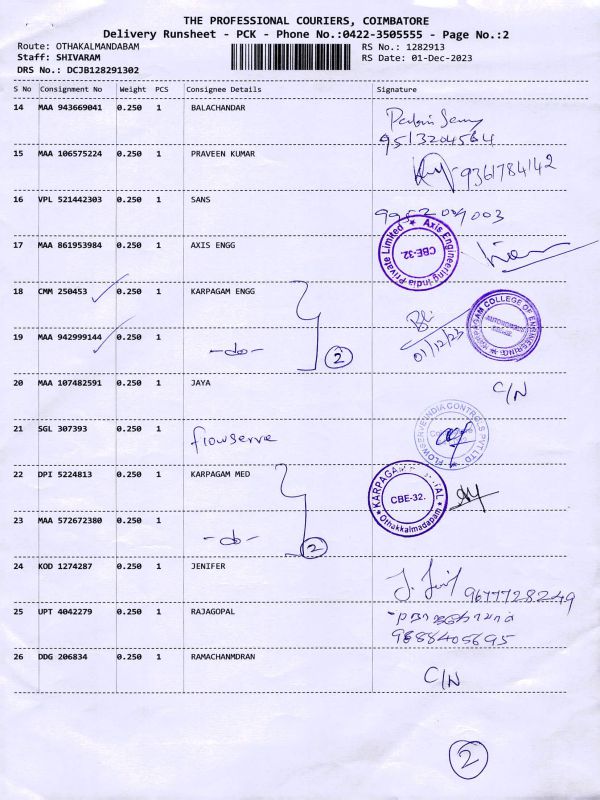 THE PROFESSIONAL COURIERS, COIMBATORE
Delivery Runsheet - PCK - Phone No.:0422-3505555 - Page No.:2
Route: OTHAKALMANDABAM RS No.: 1282913
Staff: SHIVARAM RS Date: 01-Dec-2023
DRS No.: DCJB128291302
S No Consignment No Weight PCS Consignee Details Signature
14 MAA 943669041 0.250 1 BALACHANDAR
9513204564
15 MAA 106575224 0.250 1 PRAVEEN KUMAR
9361784142
16 VPL 521442303 0.250 1 SANS
17 MAA 861953984 0.250 1 AXIS ENGG
Axis Engineering India Private Limited ★
CBE-32.
18 CMM 250453 0.250 1 KARPAGAM ENGG
19 MAA 942999144 0.250 1
-do- 2
01/12/23
KARPAGAM COLLEGE OF ENGINEERING ★
AUTONOMOUS
20 MAA 107482591 0.250 1 JAYA
C/N
21 SGL 307393 0.250 1 flowserve
FLOWSERVE INDIA CONTROLS PVT LTD
22 DPI 5224813 0.250 1 KARPAGAM MED
KARPAGAM
CBE-32.
Othakkalmadapam
23 MAA 572672380 0.250 1
-do- 2
24 KOD 1274287 0.250 1 JENIFER
9677728249
25 UPT 4042279 0.250 1 RAJAGOPAL
9688405695
26 DDG 206834 0.250 1 RAMACHANMDRAN
C/N
2